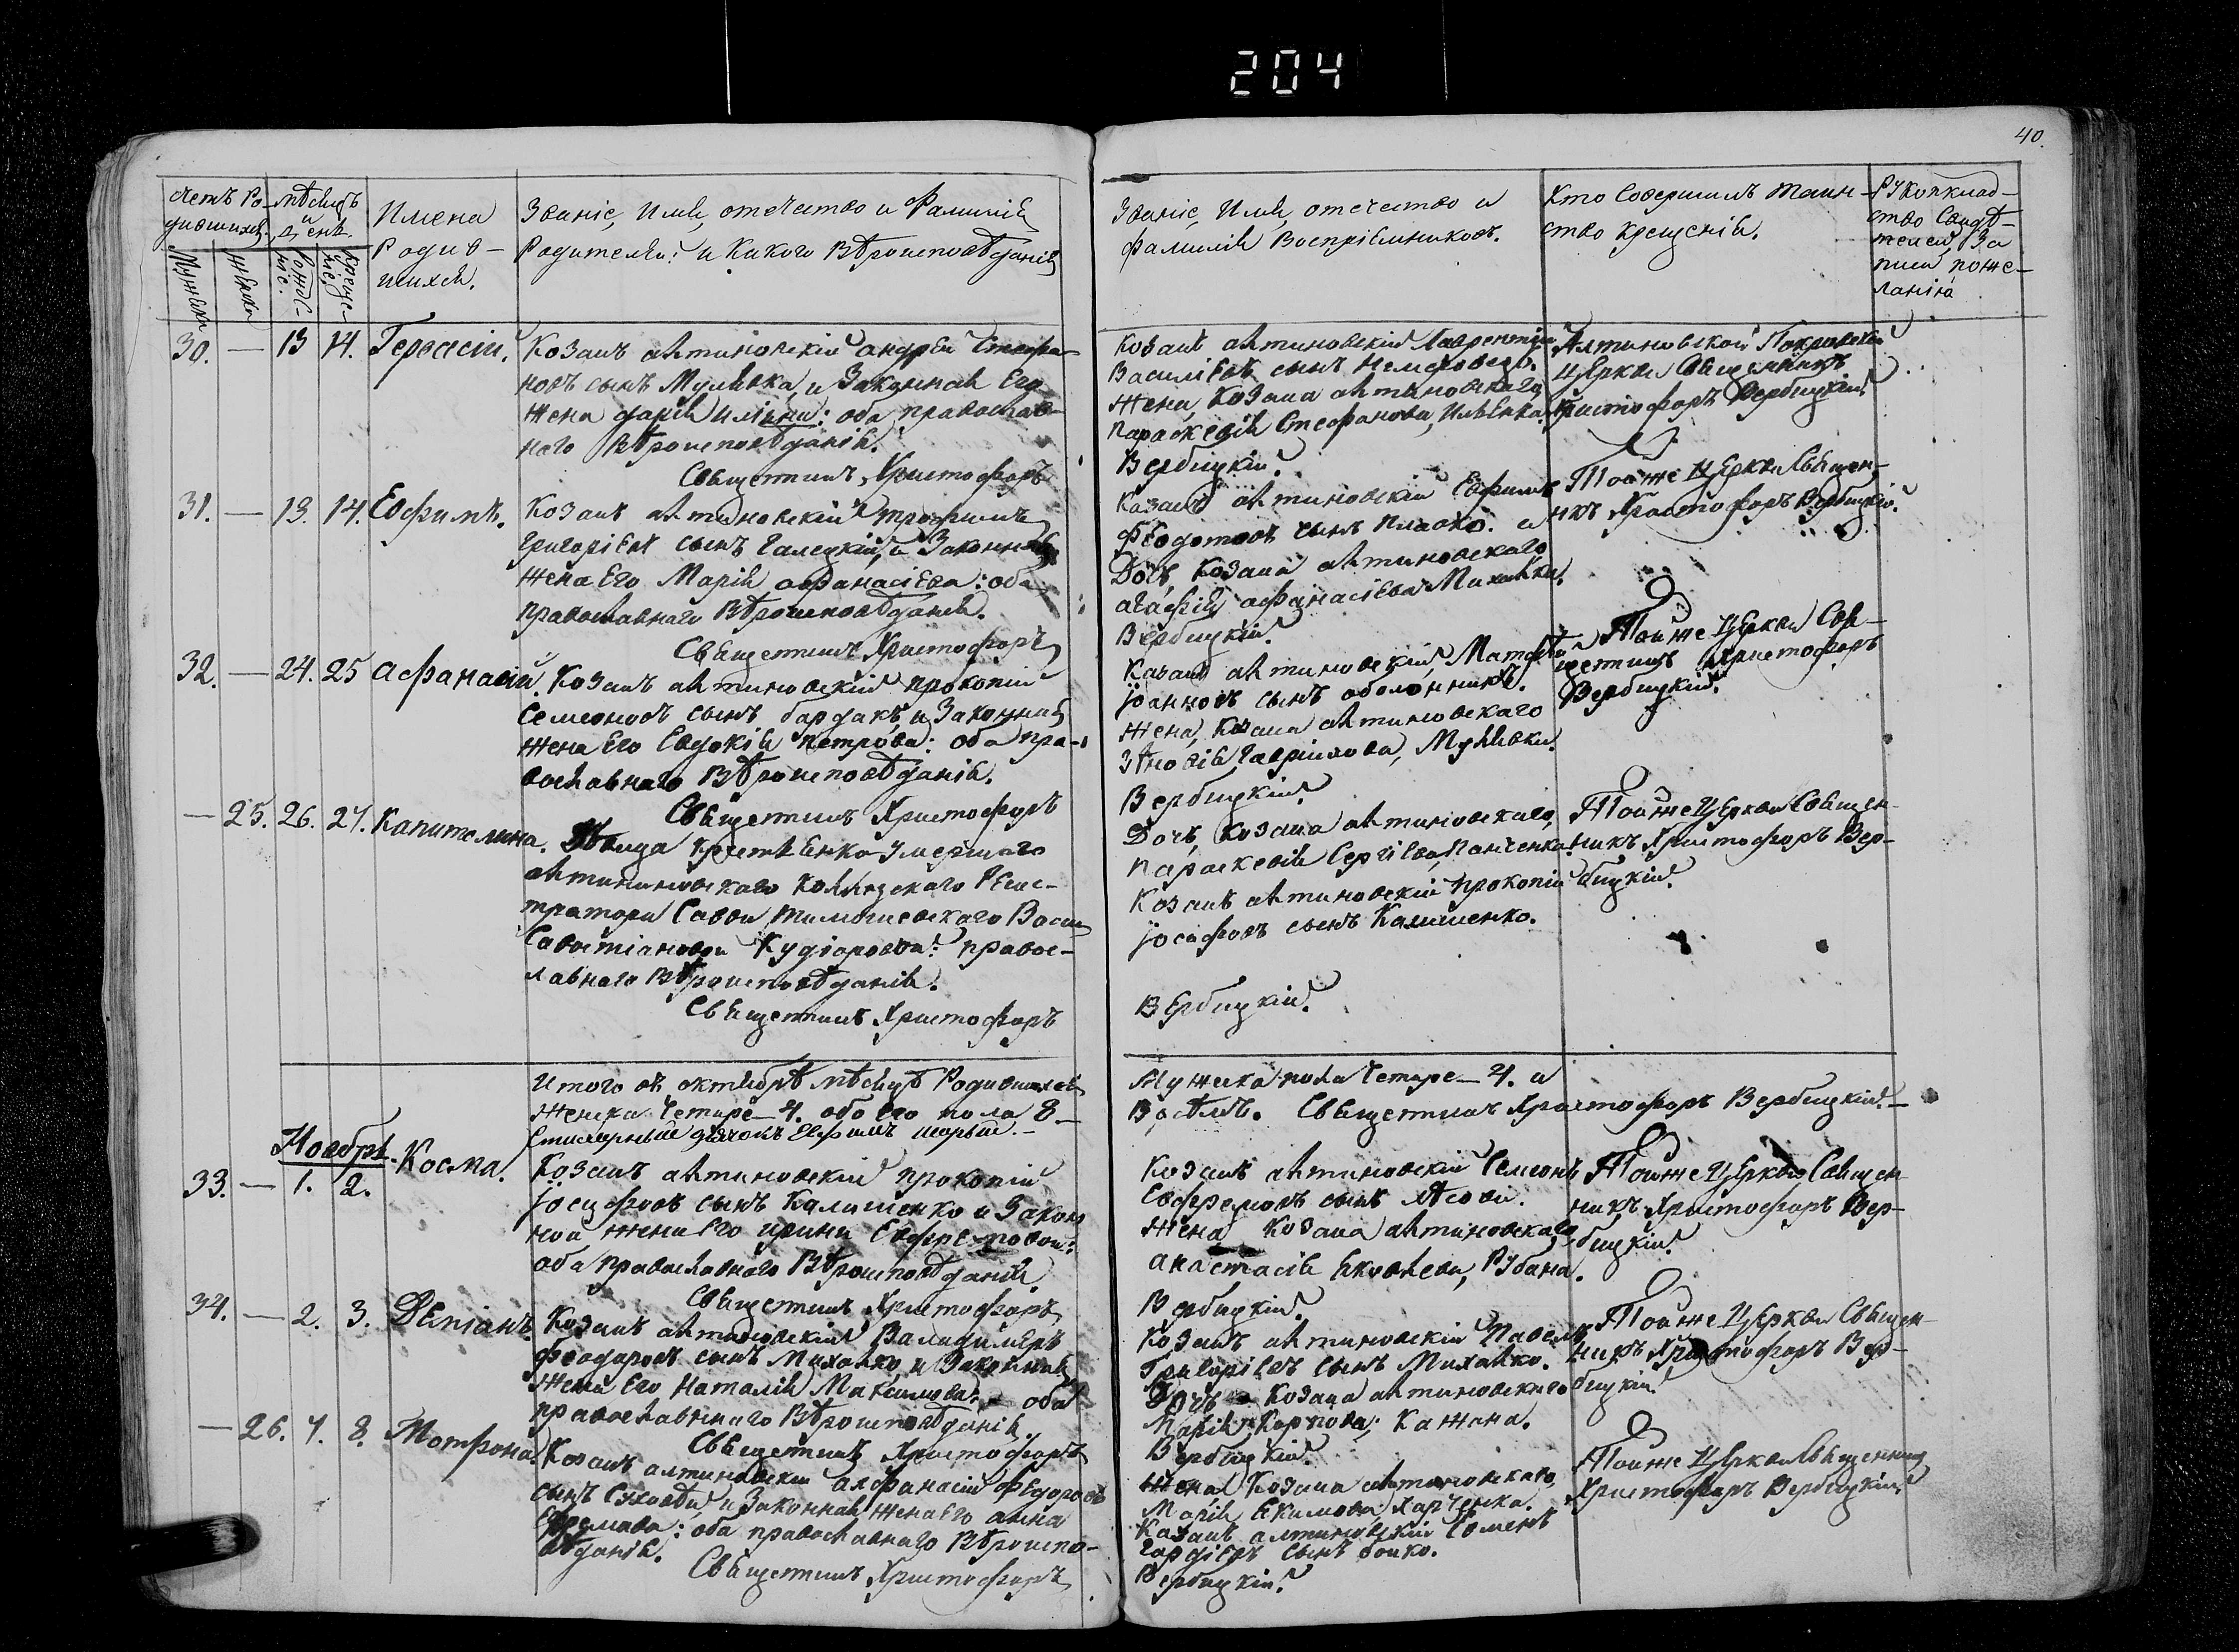 204
40.
Счетъ Ро-
дившихся.
Мѣсяцъ
и
день.
Имена
Родив-
шихся.
Званіе, Имя, отечество и Фамилія
Родителей: и Какого Вѣроисповѣданія
Мужеска
Женска
Рожде-
ніе.
Креще-
ніе.
Званіе, Имя, отечество и
фамилія Воспріемниковъ.
Кто Совершилъ таин-
ство крещенія.
Рукоприклад-
ство Свидѣ-
телей За
писи поже-
ланію
30. — 13 14. Гервасій.
Козакъ алтиновскій андрей Стефа-
новъ сынъ Мулявка, и Законная Его
жена дарія : оба православ-
наго Вѣроисповѣданія.
Священникъ Христофоръ
Козакъ алтиновскій Лаврентій
Василіевъ сынъ
Жена, Козака алтиновскаго
Параскевія Стефанова, Ильенка.
Вербицкій.
Алтиновской Покровской
Церкви Священникъ
Христофоръ Вербицкій.
31. — 13. 14. Евфимъ.
Козакъ алтиновскій трофимъ
Григоріевъ сынъ Галецкій, и Законная
жена Его Марія афанасіева: оба
православнаго Вѣроисповѣданія.
Священникъ Христофоръ
Казакъ алтиновскій Евфимъ
Феодотовъ сынъ Пласко. и
Дочь, Козака алтиновскаго
агафія афанасіева Михалка.
Вербицкій.
Тояже Церкви Священ-
никъ Христофоръ Вербицкій.
32. — 24. 25 Афанасій.
Козакъ алтиновскій прокопій
Семеновъ сынъ бардакъ, и Законная
жена Его Евдокія петрова: оба пра-
вославнаго Вѣроисповѣданія.
Священникъ Христофоръ
Казакъ алтиновскій, Матфей
Іоанновъ сынъ оболонникъ.
Жена, Козака алтиновскаго
Зѣновія Гавріилова, Мулявки.
Вербицкій.
Тояже Церкви Свя-
щенникъ Христофоръ
Вербицкій.
— 25. 26. 27. Капитолина.
Дѣвица умершаго
алтиновскаго Коллѣзскаго Регис-
тратора Саввы Васса
Савостіанова Кудіарова: правос-
лавнаго Вѣроисповѣданія.
Священникъ Христофоръ
Дочь, Козака алтиновскаго,
Параскевія Сергіева, Панченка.
Козакъ алтиновскій прокопій
Іосифовъ сынъ Калишенко.
Вербицкій.
Тояже Церкви Священ-
никъ Христофоръ Вер-
бицкій.
Итого въ октябрѣ мѣсяцѣ Родившихся
Женска Четире — 4. обоего пола 8 —
дячокъ Евфимъ
Мужеска пола Четире — 4. и
Восѣмъ. Священникъ Христофоръ Вербицкій. —
Ноябрь.
33. — 1. 2. Косма.
Козакъ алтиновскій прокопій
Іосифовъ сынъ Калишенко и Закон
ной жени Его ирини Евфремовой:
оба православнаго Вѣроисповѣданія.
Священникъ Христофоръ
Козакъ алтиновскій Семенъ
Евфремовъ сынъ
Жена Козака алтиновскаго
анастасія Яковлева, Рубана.
Вербицкій.
Тояже Церкви Священ-
никъ Христофоръ Вер-
бицкій.
34. — 2. 3. Даміанъ.
Козакъ алтиновскій Валадимѣръ
феодоровъ сынъ Михалко, и Законная
жена Его Наталія Максимова: оба
православнаго Вѣроисповѣданія.
Священникъ Христофоръ
Козакъ алтиновскій Павелъ
Григоріевъ сынъ Михалко.
Дочь Козака алтиновскаго
Марія Карпова, Кажана.
Вербицкій.
Тояже Церкви Священ-
никъ Христофоръ Вер-
бицкій.
— 26. 7. 8. Матрона.
Козакъ алтиновскій афанасій Федоровъ
сынъ и Законная жена Его анна
Ефремова: оба православнаго Вѣроиспо-
вѣданія.
Священникъ Христофоръ
Жена Козака алтиновскаго
Марія Екимова Харченка.
Казакъ алтиновскій Семенъ
Гордіевъ сынъ бойко.
Вербицкій.
Тояже Церкви Священникъ
Христофоръ Вербицкій.